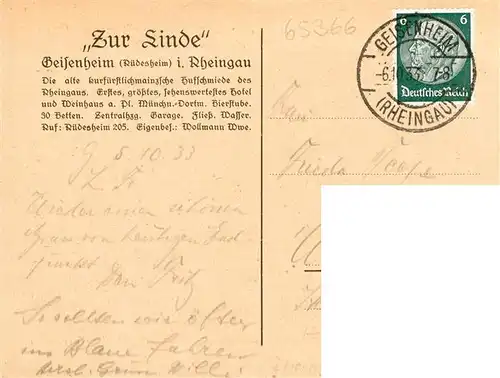 „Zur Linde"
Geisenheim (Rüdesheim) i. Rheingau
Die alte kurfürstlichmainzsche Hufschmiede des
Rheingaus. Erstes, größtes, sehenswertestes Hotel
und Weinhaus a. Pl. Münchn.-Dortm. Bierstube.
30 Betten. Zentralhzg. Garage. Fließ. Wasser.
Ruf: Rüdesheim 205. Eigenbes.: Wollmann Wwe.
G 5.10.33
L. Fr
Wieder einen schönen
Gruss vom heutigen
Dein Fritz
So sollten wir öfter
ins Blaue fahren
Grüss Willi
65366
6 6
Deutsches Reich
GEISENHEIM
-6.10.33. 7-8
(RHEINGAU)
Frau
Frieda